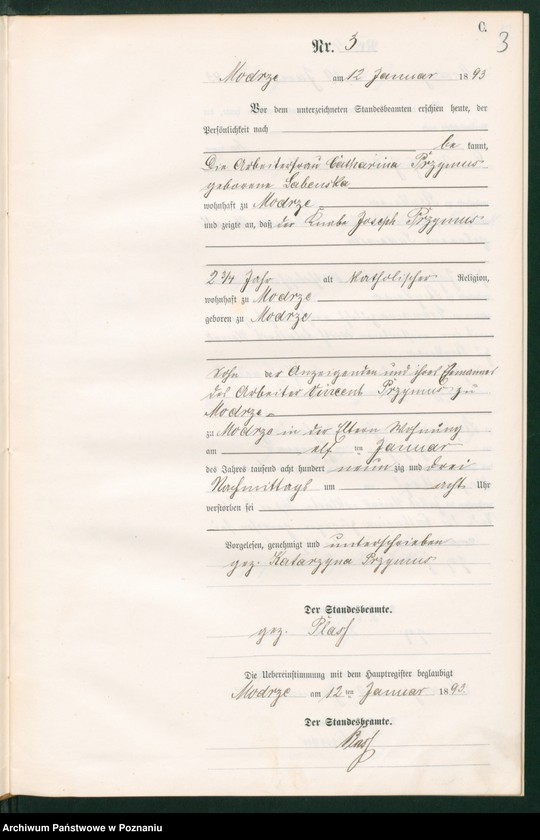 C.
Nr. 3
3
Modrze am 12 Januar 1893
Vor dem unterzeichneten Standesbeamten erschien heute, der
Persönlichkeit nach
be kannt,
Die Arbeiterfrau Catharina Przymus
geborene Labenska
wohnhaft zu Modrze
und zeigte an, daß der Knabe Joseph Przymus
2 3/4 Jahr alt katholischer Religion,
wohnhaft zu Modrze
geboren zu Modrze
Sohn der Anzeigenden und ihres Ehemannes
des Arbeiter Vincent Przymus zu
Modrze
zu Modrze in der Eltern Wohnung
am elf ten Januar
des Jahres tausend acht hundert neun zig und drei
Nachmittags um acht Uhr
verstorben sei
Vorgelesen, genehmigt und unterschrieben
gez. Katarzyna Przymus
Der Standesbeamte.
gez.
Die Uebereinstimmung mit dem Hauptregister beglaubigt
Modrze am 12ten Januar 1893.
Der Standesbeamte.
Archiwum Państwowe w Poznaniu